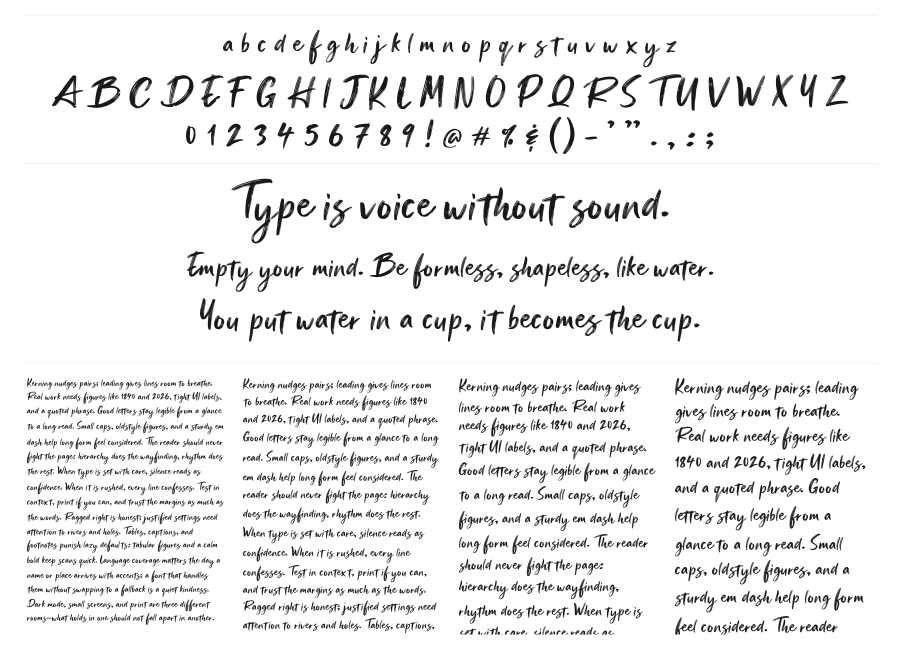 a b c d e f g h i j k l m n o p q r s t u v w x y z
A B C D E F G H I J K L M N O P Q R S T U V W X Y Z
0 1 2 3 4 5 6 7 8 9 ! @ # % & ( ) - ' " . , : ;
Type is voice without sound.
Empty your mind. Be formless, shapeless, like water.
You put water in a cup, it becomes the cup.
Kerning nudges pairs; leading gives lines room to breathe.
Real work needs figures like 1840 and 2026, tight UI labels,
and a quoted phrase. Good letters stay legible from a glance
to a long read. Small caps, oldstyle figures, and a sturdy em
dash help long form feel considered. The reader should never
fight the page: hierarchy does the wayfinding, rhythm does
the rest. When type is set with care, silence reads as
confidence. When it is rushed, every line confesses. Test in
context, print if you can, and trust the margins as much as
the words. Ragged right is honest; justified settings need
attention to rivers and holes. Tables, captions, and
footnotes punish lazy defaults: tabular figures and a calm
bold keep scans quick. Language coverage matters the day a
name or place arrives with accents; a font that handles
them without swapping to a fallback is a quiet kindness.
Dark mode, small screens, and print are three different
rooms—what holds in one should not fall apart in another.
Kerning nudges pairs; leading gives lines room
to breathe. Real work needs figures like 1840
and 2026, tight UI labels, and a quoted phrase.
Good letters stay legible from a glance to a long
read. Small caps, oldstyle figures, and a sturdy
em dash help long form feel considered. The
reader should never fight the page: hierarchy
does the wayfinding, rhythm does the rest.
When type is set with care, silence reads as
confidence. When it is rushed, every line
confesses. Test in context, print if you can,
and trust the margins as much as the words.
Ragged right is honest; justified settings need
attention to rivers and holes. Tables, captions,
Kerning nudges pairs; leading gives
lines room to breathe. Real work
needs figures like 1840 and 2026,
tight UI labels, and a quoted phrase.
Good letters stay legible from a glance
to a long read. Small caps, oldstyle
figures, and a sturdy em dash help
long form feel considered. The reader
should never fight the page:
hierarchy does the wayfinding,
rhythm does the rest. When type is
set with care, silence reads as
Kerning nudges pairs; leading
gives lines room to breathe.
Real work needs figures like
1840 and 2026, tight UI labels,
and a quoted phrase. Good
letters stay legible from a
glance to a long read. Small
caps, oldstyle figures, and a
sturdy em dash help long form
feel considered. The reader